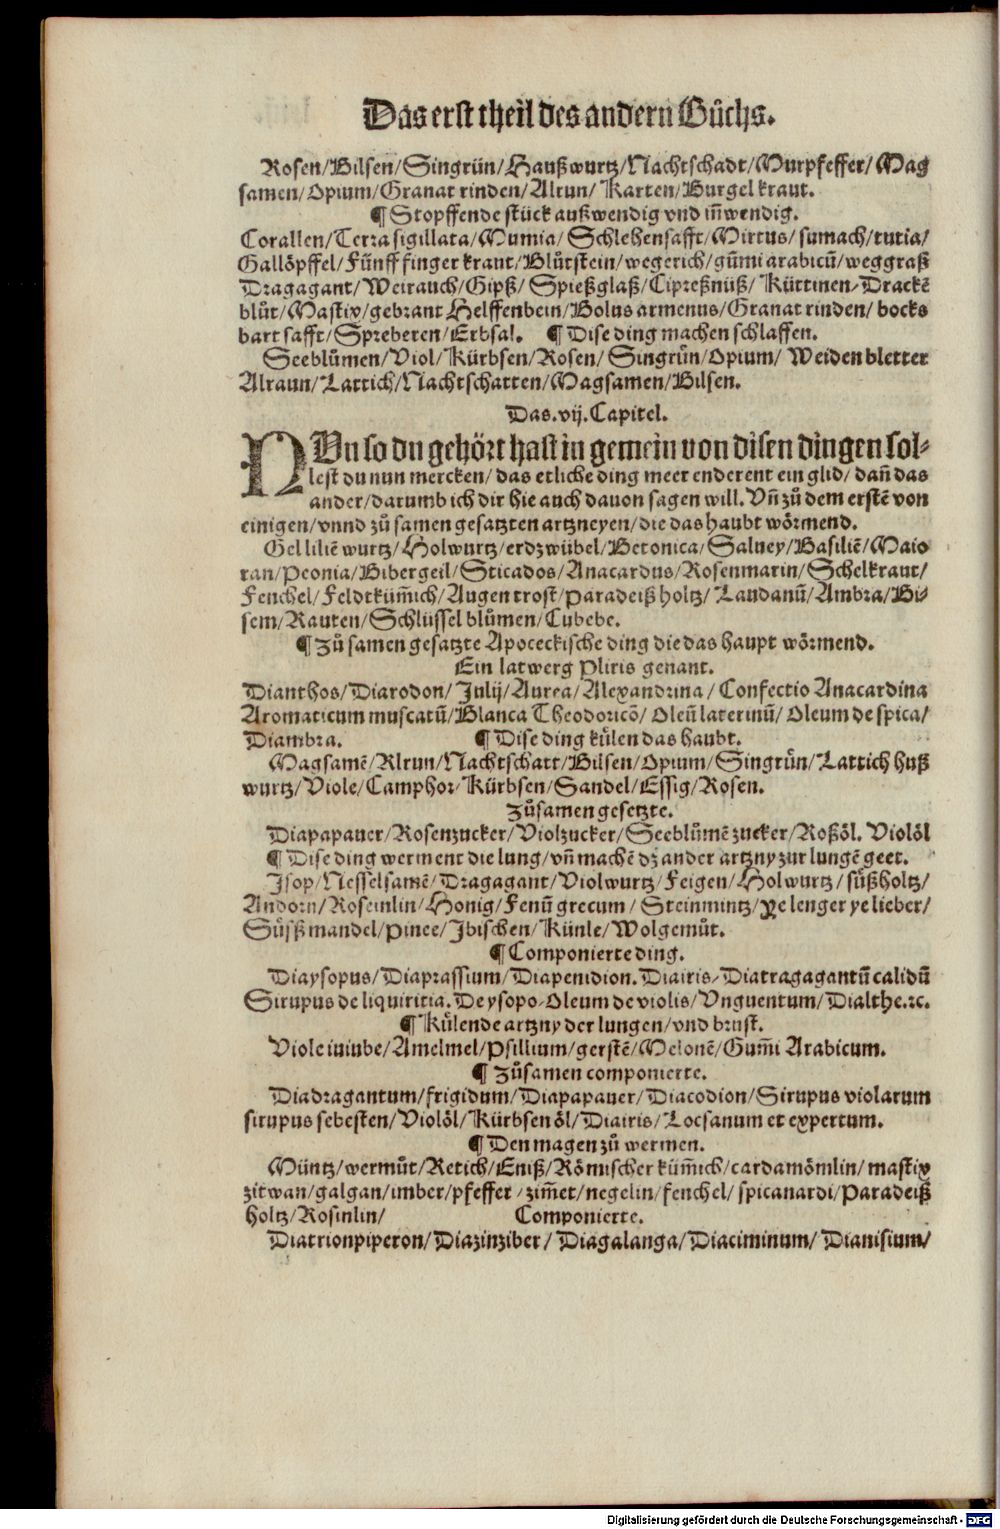 Das erst theil des andern Bůchs.
Rosen/Bilsen/Singrün/Haußwurtz/Nachtschadt/Murpfeffer/Mag
samen/Opium/Granat rinden/Alrun/ Karten/Burgel kraut.
¶ Stopffende stück außwendig vnd iñwendig.
Corallen/Terra sigillata/Mumia/ Schlehensafft/Mirtus/ sumach/tutia/
Gallöpffel/Fünff finger kraut/Blůtstein/wegerich/gūmi arabicū/weggraß
Dragagant/Weirauch/Gipß/ Spießglaß/Cipreßnüß/ Küttinen/Drackē
blůt/Mastix/gebrant Helffenbein/Bolus armenus/Granat rinden/ bocks
bart safft/Spreberen/Erbsal. ¶ Dise ding machen schlaffen.
Seeblůmen/Viol/Kürbsen/Rosen/ Singrün/Opium/ Weiden bletter
Alraun/Lattich/Nachtschatten/Magsamen/Bilsen.
Das .vij. Capitel.
NVn so du gehört hast in gemein von disen dingen sol-
lest du nun mercken/ das etliche ding meer enderent ein glid/ dañ das
ander/darumb ich dir hie auch dauon sagen will. Vñ zů dem erstē von
einigen/vnnd zů samen gesatzten artzneyen/die das haubt wörmend.
Gel liliē wurtz/Holwurtz/erdzwübel/Betonica/Saluey/Basiliē/Maio
ran/Peonia/Bibergeil/Sticados/Anacardus/Rosenmarin/Schelkraut/
Fenchel/Feldtküm̃ich/Augen trost/Paradeiß holtz/ Laudanū/Ambra/Bi-
sem/Rauten/Schlüssel blůmen/Cubebe.
¶ Zů samen gesatzte Apoceckische ding die das haupt wörmend.
Ein latwerg Pliris genant.
Dianthos/Diarodon/ Julij/Aurea/Alexandrina/ Confectio Anacardina
Aromaticum muscatū/Blanca Theodoricō/ Oleū laterinū/ Oleum de spica/
Diambra. ¶ Dise ding külen das haubt.
Magsamē/Alrun/Nachtschatt/Bilsen/Opium/Singrün/Lattich huß
wurtz/Viole/Camphor/Kürbsen/Sandel/Essig/Rosen.
Zůsamen gesetzte.
Diapapauer/Rosenzucker/Violzucker/Seeblůmē zucker/Roßöl. Violöl
¶ Dise ding werment die lung/vñ machē dz ander artzny zur lungē geet.
Isop/Nesselsamē/Dragagant/Violwurtz/Feigen/Holwurtz/süßholtz/
Andorn/Roseinlin/Honig/Fenū grecum/ Steinmintz/ye lenger ye lieber/
Süßmandel/Pinee/Ibischen/Künle/Wolgemůt.
¶ Componierte ding.
Diaysopus/Diaprassium/Diapenidion. Diairis/Diatragagantū calidū
Sirupus de liquiritia. De ysopo/Oleum de violis/Vnguentum/Dialthe.ꝛc.
¶ Külende artzny der lungen/vnd brust.
Viole iuiube/Amelmel/Psillium/gerstē/Melonē/Gum̃i Arabicum.
¶ Zůsamen componierte.
Diadragantum/frigidum/Diapapauer/Diacodion/Sirupus violarum
sirupus sebesten/Violöl/Kürbsen öl/Diairis/Locsanum et expertum.
¶ Den magen zů wermen.
Müntz/wermůt/Retich/Eniß/Römischer küm̃ich/cardamömlin/mastix
zitwan/galgan/imber/pfeffer/zim̃et/negelin/fenchel/spicanardi/Paradeiß
holtz/Rosinlin/ Componierte.
Diatrionpiperon/Diazinziber/ Diagalanga/Diaciminum/ Dianisium/
Digitalisierung gefördert durch die Deutsche Forschungsgemeinschaft - DFG